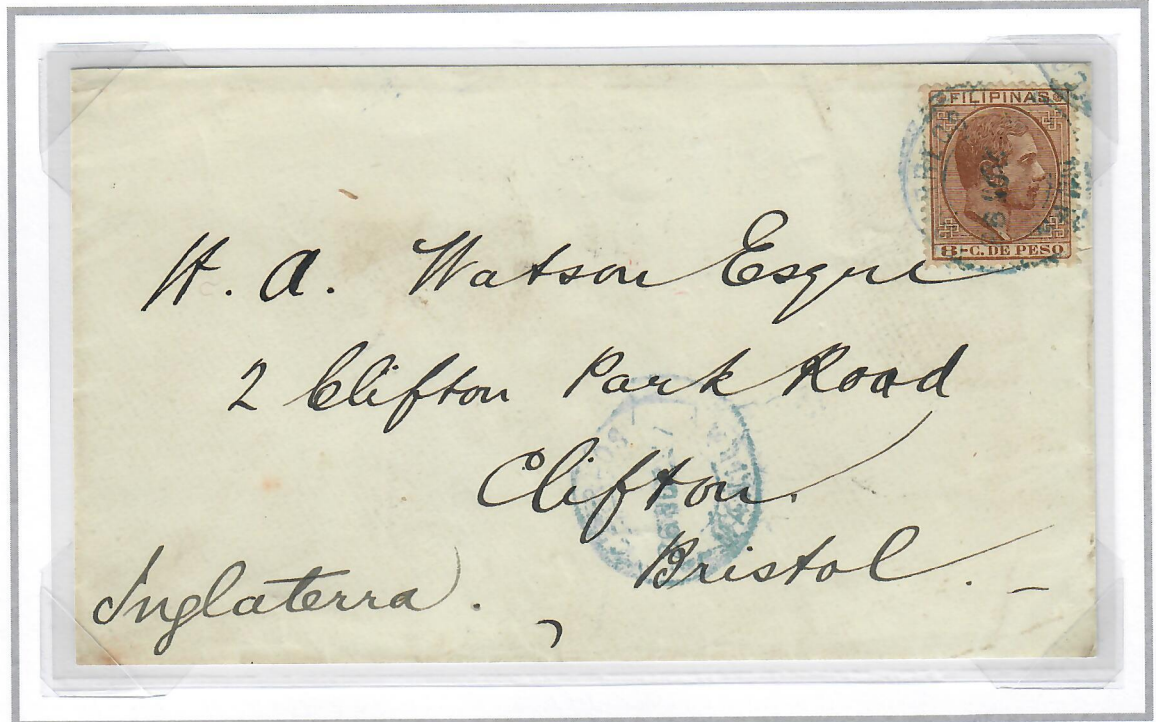 FILIPINAS
8 C. DE PESO
H. A. Watson Esqre
2 Clifton Park Road
Clifton.
Bristol.
Inglaterra.